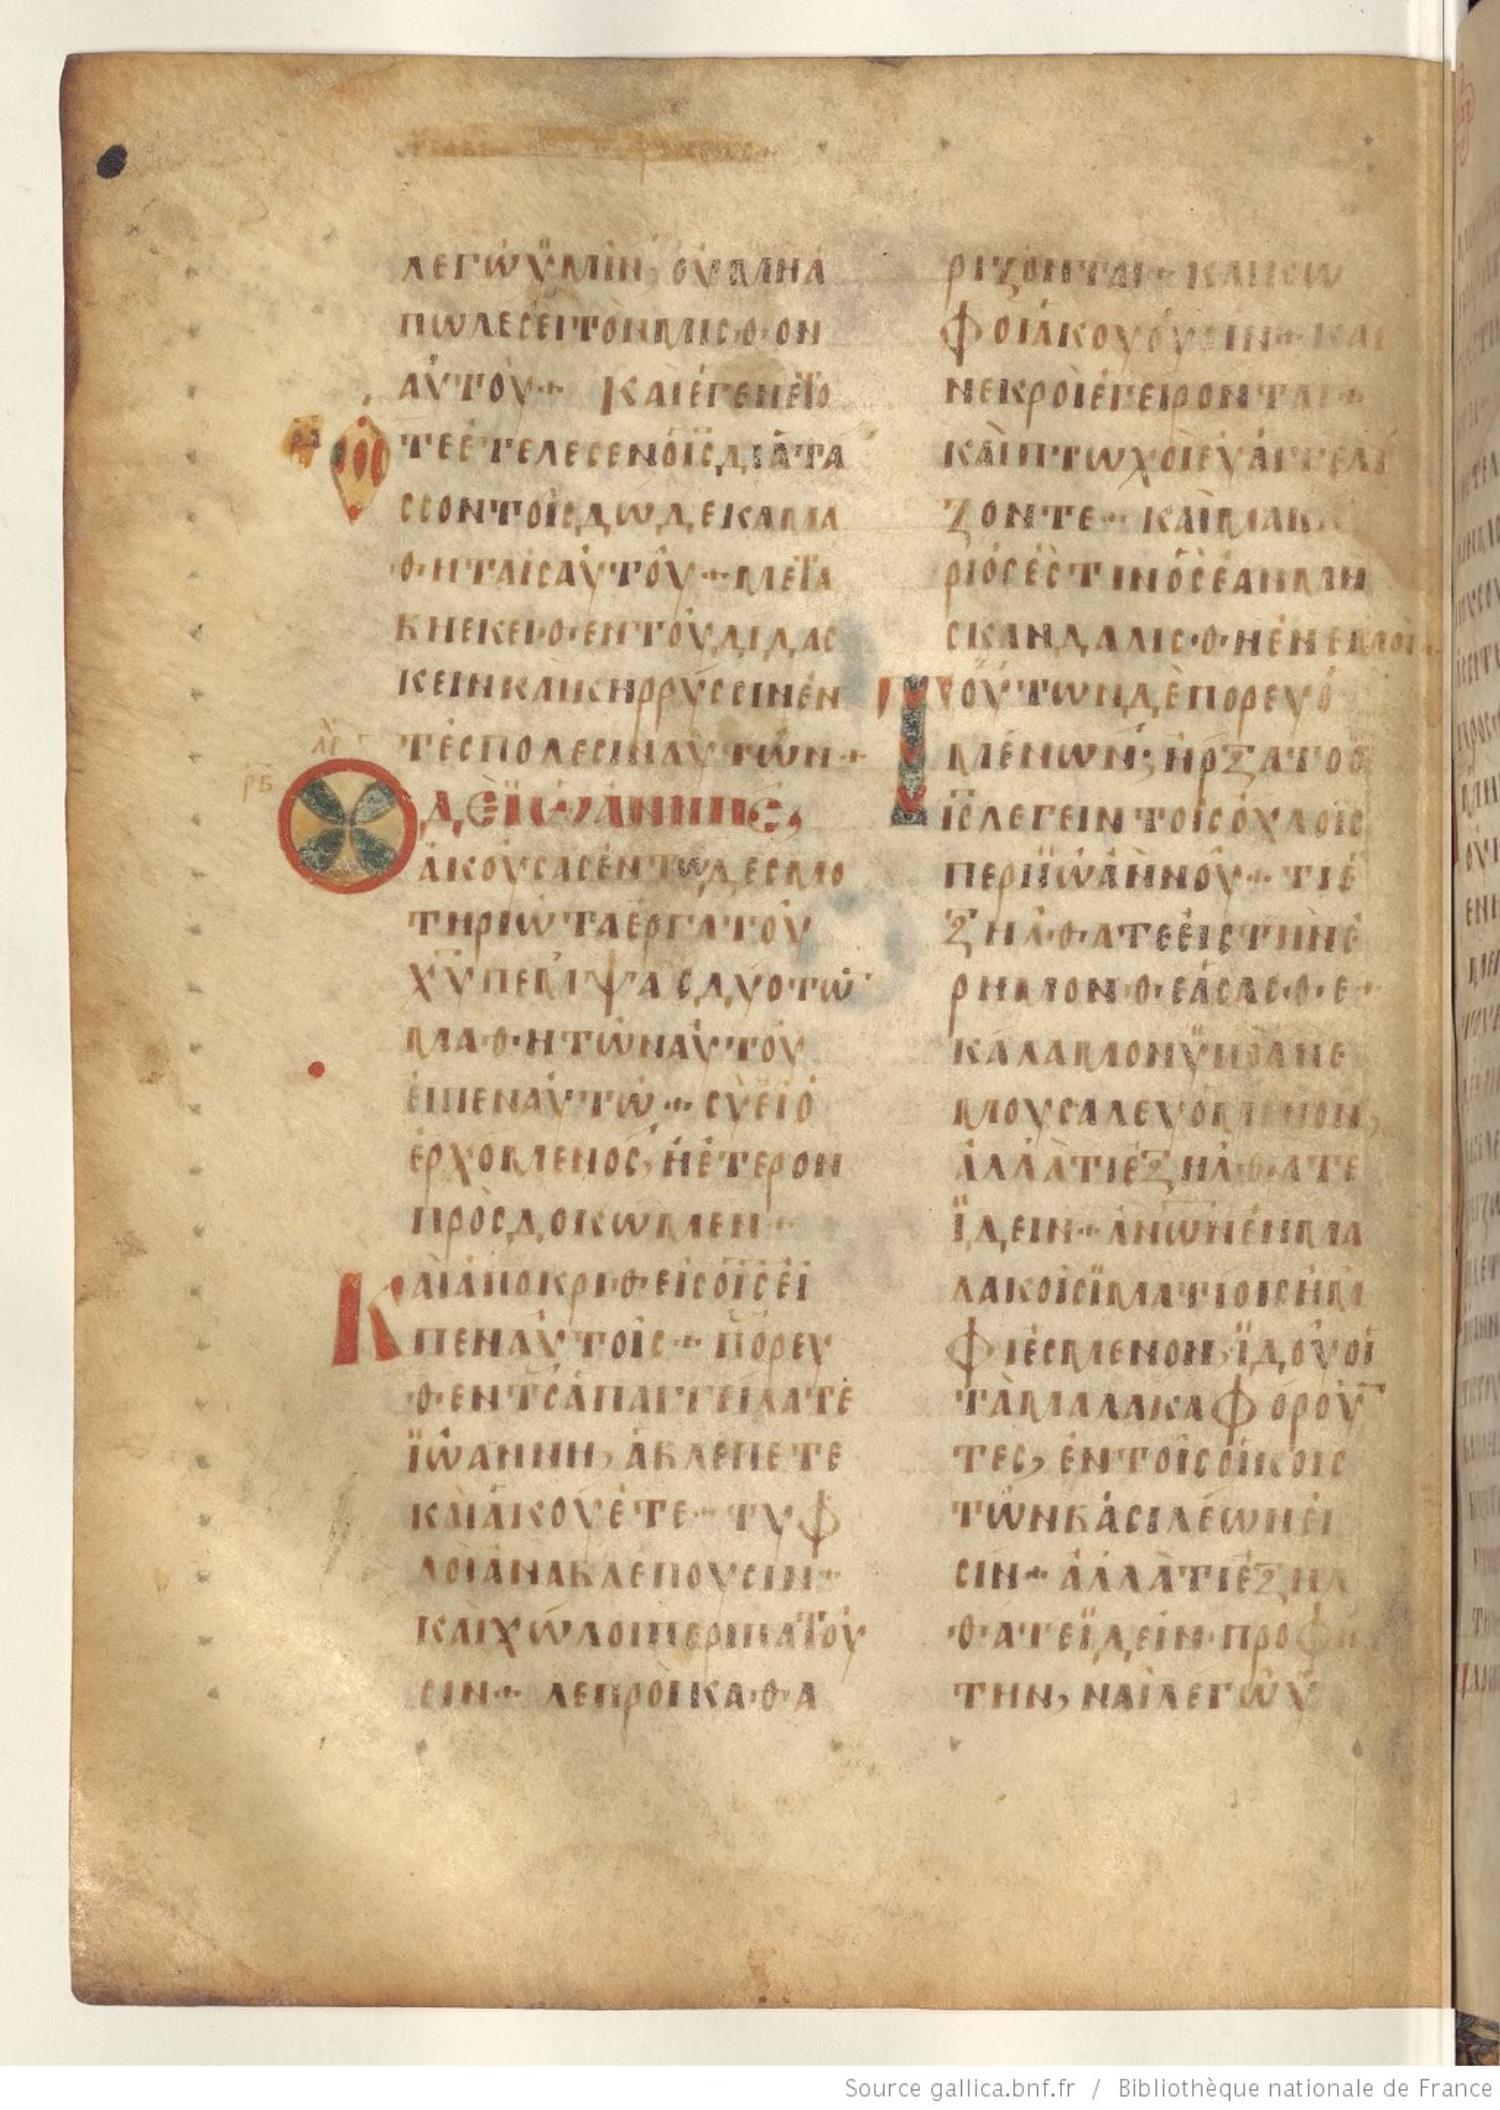 λεγὼ ϋμῖν, οὐ μὴ ἀ
πωλεσει τὸν μισθον
ἀυτοῦ· Καὶ ἐγενετο
τε ἐτελεσεν ὁ ις διατα
σσον τοῖς δωδεκα μα
θηταῖς αὐτοῦ· μετα
βη εκειθεν τοῦ διδας
κειν και κηρρύσσιν ἐν
τὲς πολεσιν αυτῶν
ρβ
Ο δε ϊωαννης,
ἀκούσας ἐν τω δεσμο
τηριὼ τα ἐργα τοῦ
χυ πεμψας δυο τῶ
μαθητῶν αὐτοῦ
ειπεν αὐτω· σὺ εἰ ὁ
ἐρχομενος, ἢ ἑτερον
πρὸσδοκωμεν
Καὶ ἀποκριθεις ὁ ις ἐι
πεν αὐτοῖς· πορευ
θεντες ἀπαγγειλατε
ϊωαννη, ἁ βλεπετε
καὶ ἀκούετε· τυφ
λοι ἀναβλεπουσιν
και χωλοι περιπατου
σιν· λεπροὶ καθα
ριζονται· και κω
φοι ἀκούουσιν· και
νεκροὶ ἐγειρονται
καὶ πτωχοὶ εὐαγγελι
ζοντε· καὶ μακα
ριός ἐστιν ὃς ἐαν μη
σκανδαλισθη ἐν εμοὶ
Τούτων δὲ πορευο
μένων· ἠρξατο ὁ
ις λεγειν τοῖς ὀχλοις
περι ϊωἀννου· τι ἐ
ξηλθατε εἰς τὴν ἐ
ρημον θεάσασθε
καλαμον ϋπο ἀνε
μου σαλευομενον,
ἀλλὰ τι ἐξηλθατε
ϊδειν· ἀνων ἐν μα
λακοῖς ϊματιοις ἠμ
φιέσμενον, ϊδού οἱ
τὰ μαλακα φοροῦ
τες, ἐν τοῖς οἰκοις
τῶν βασιλέων ἐι
σιν· ἀλλὰ τι ἐξηλ
θατε ϊδεῖν· προφη
την, ναὶ λεγω ϋ
Source gallica.bnf.fr / Bibliothèque nationale de France